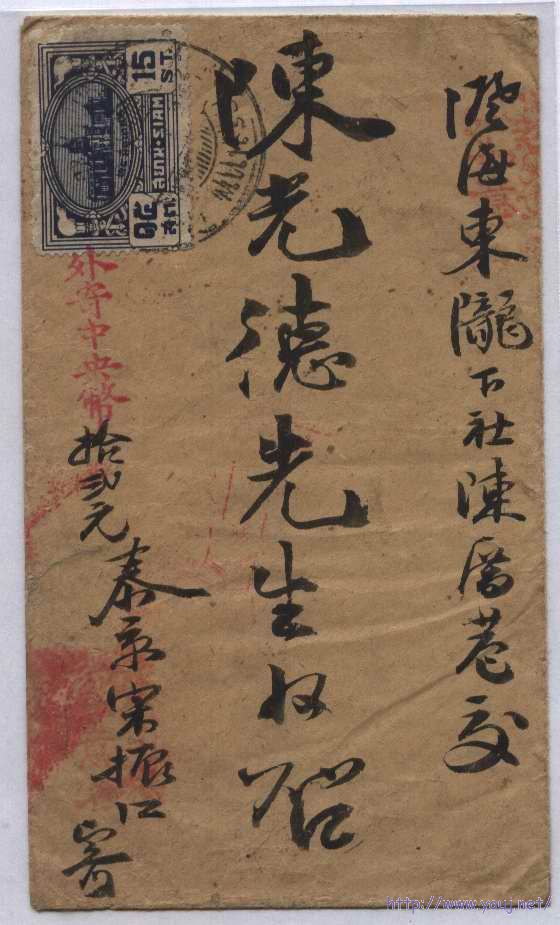 澄海東隴下社陳厝巷交
陳光德先生收啓
外寄中央幣拾弍元
泰京宋振江寄
15 ST.
สยาม·SIAM
๑๕ สต.
http://www.youj.net/